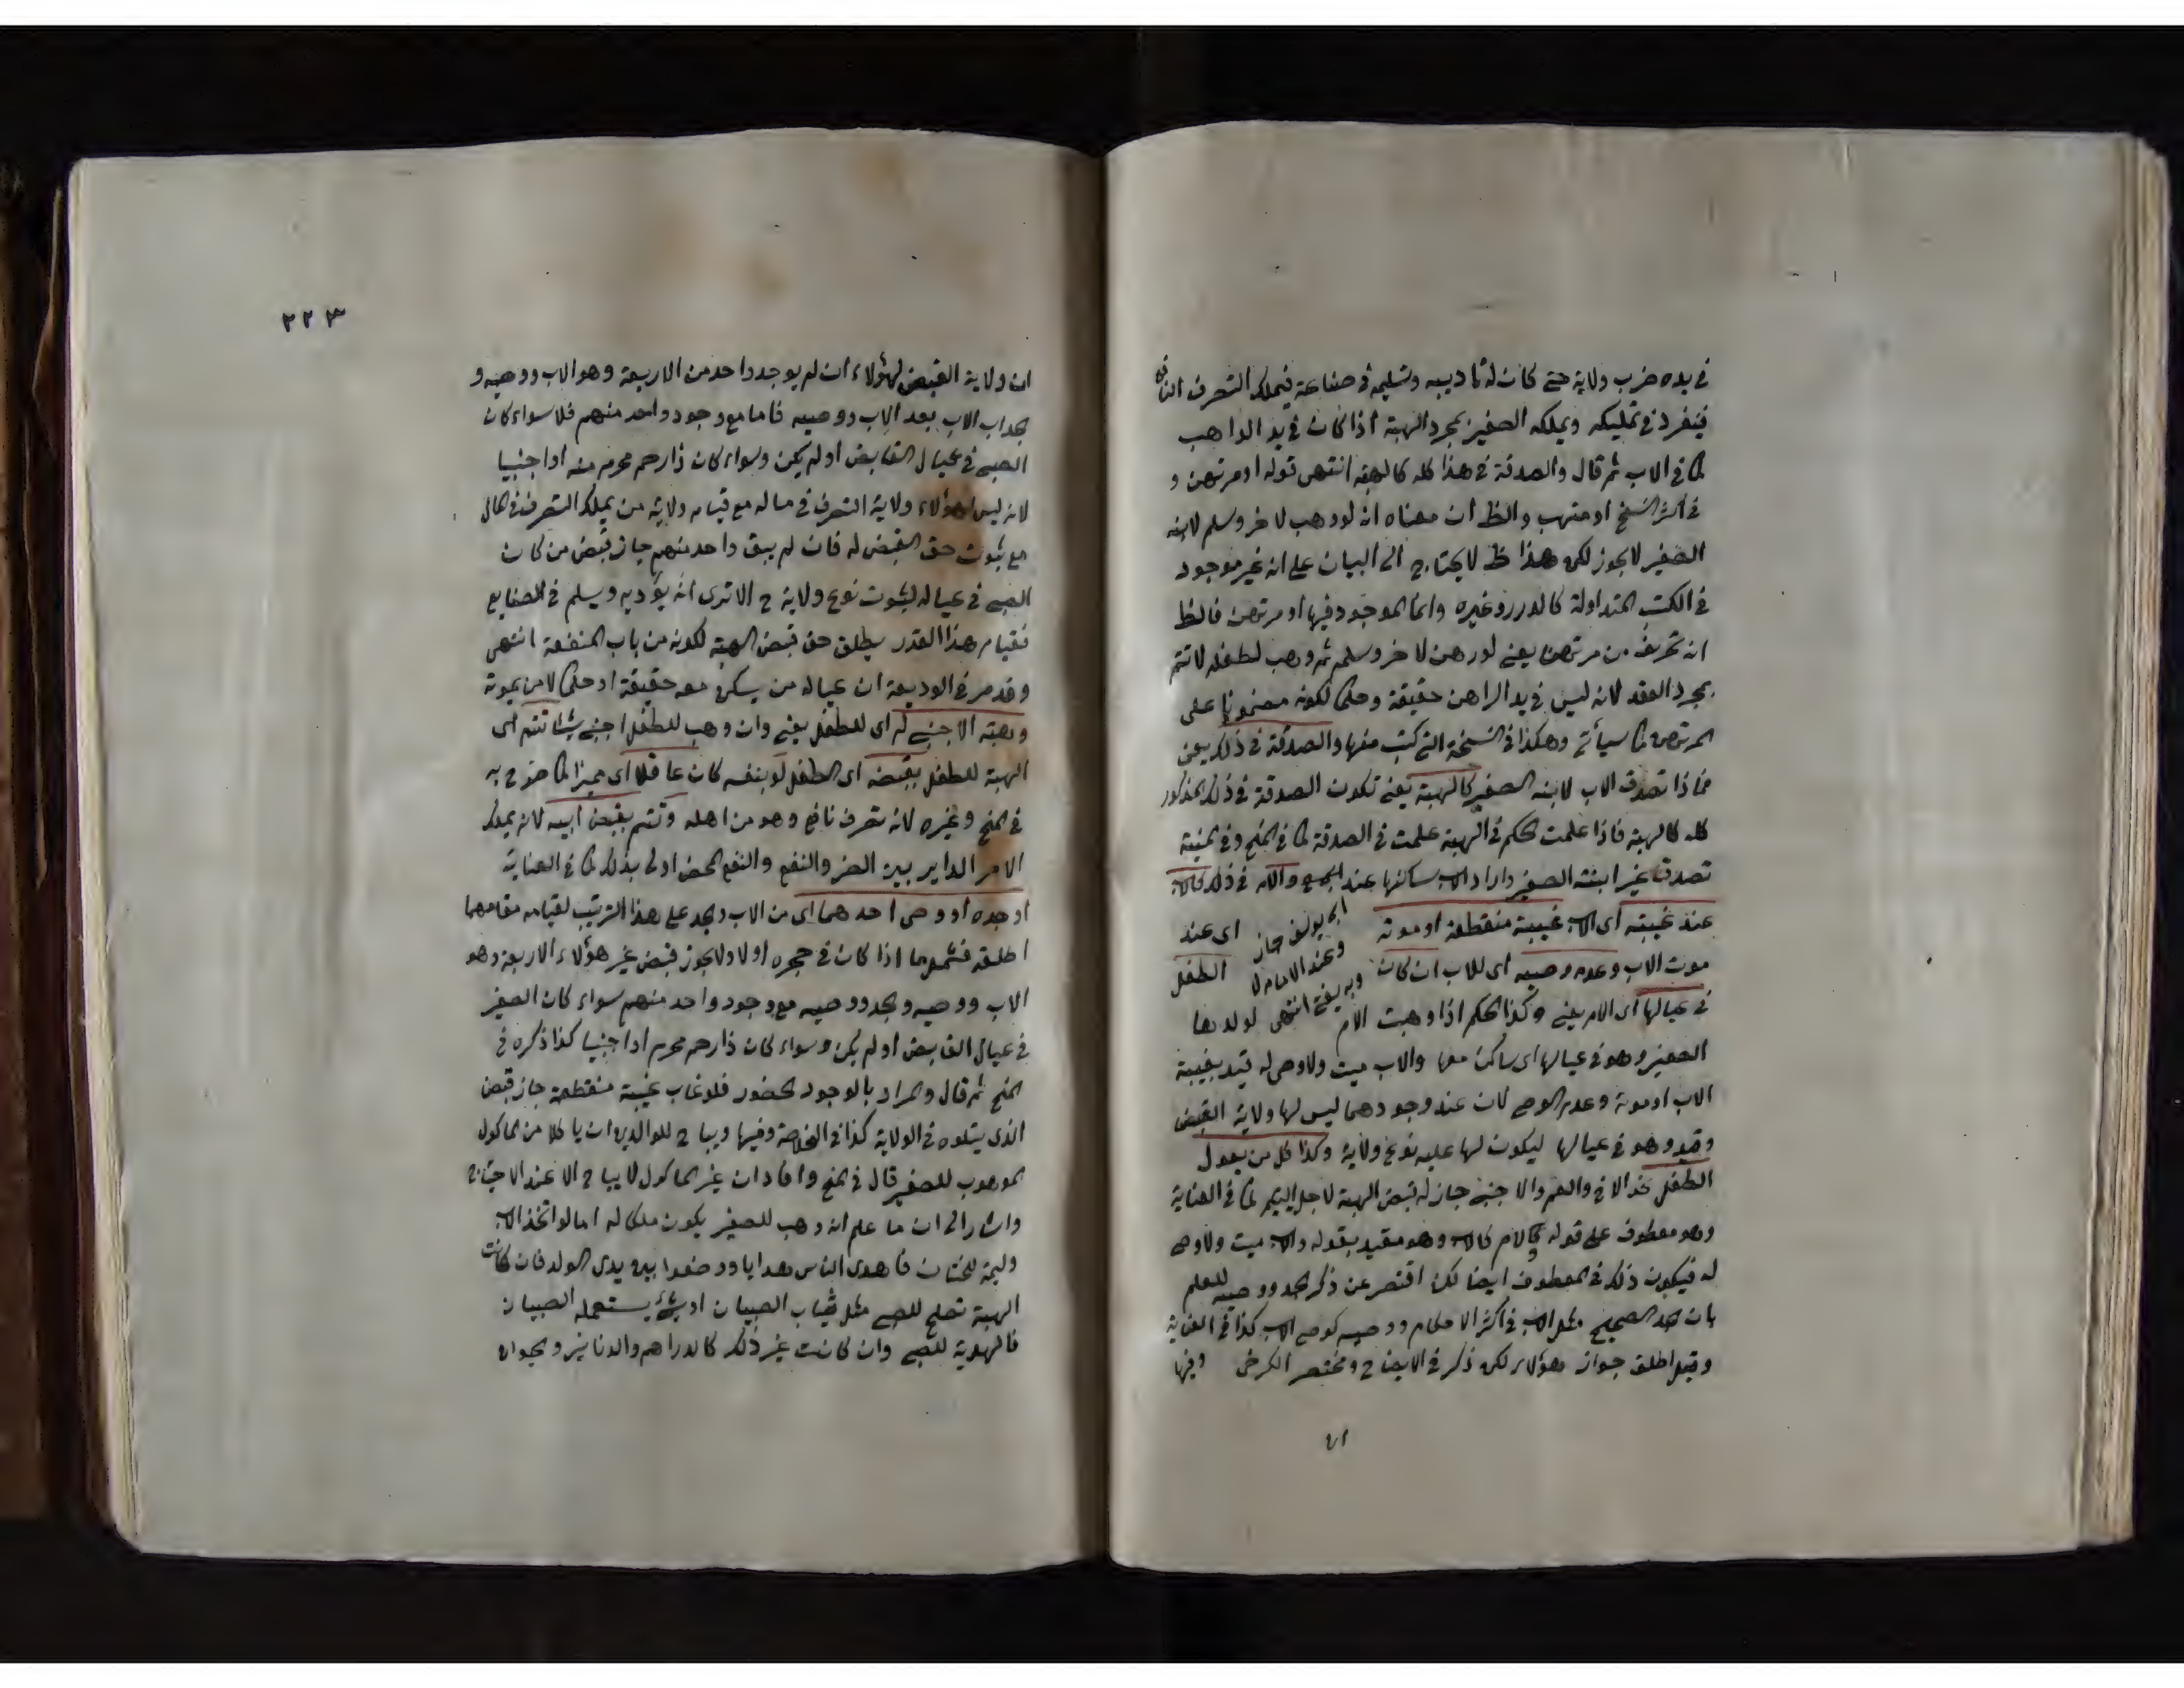 في يده ضرب ولاية حتى كان له تاديبه وتسليمه في صناعة فيملك التصرف النافع
فينفرد في تمليكه ويملكه الصغير بمجرد الهبة اذا كان في يد الواهب
كما في الاب ثم قال والصدقة في هذا كله كالهبة انتهى قوله او مرتهن و
في اكثر النسخ او متهب والظ ان معناه انه لو وهب لاخر وسلم لابنه
الصغير لا يجوز لكن هذا ظ لا يحتاج الى البيان على انه غير موجود
في الكتب المتداولة كالدرر وغيره وانما الموجود فيها او مرتهن فالظ
انه تحريف من مرتهن يعني لو رهن لاخر وسلمه ثم وهب لطفله لا تتم
بمجرد العقد لانه ليس في يد الراهن حقيقة وحكما لكونه مضمونا على
المرتهن كما سيأتي وهكذا في النسخة التي كتب منها والصدقة في ذلك يعني
فاذا تصدق الاب لابنه الصغير كالهبة يعني تكون الصدقة في ذلك المذكور
كله كالهبة فاذا علمت الحكم في الهبة علمت في الصدقة كما في المنح وفي المنية
تصدق على ابنته الصغير دارا والاب ساكنها عند والام في ذلك كالاب
ابي يوسف جاز
عند غيبته اى الاب غيبة منقطعة او موته اى عند
وعند الامام لا
موت الاب وعدم وصيه اى للاب ان كان الطفل
وبه يفتى انتهى
في عيالها اى الام يعني وكذا الحكم اذا وهبت الام لولدها
الصغير وهو في عيالها اى ساكن معها والاب ميت ولا وصى له قيد بغيبة
الاب او موته وعدم الوصي لان عند وجودهما ليس لها ولاية القبض
وقيد وهو في عيالها ليكون لها عليه نوع ولاية وكذا كل من يعول
الطفل نحو الاخ والعم والاجنبي جاز له قبض الهبة لاجل اليتيم كما في العناية
وهو معطوف على قوله والام كالاب وهو مقيد بقوله والاب ميت ولا وصي
له فيكون ذلك في المعطوف ايضا لكن اقتصر عن ذكر الجد ووصيه للعلم
بان الجد الصحيح مثل الاب في اكثر الاحكام ووصيه كوصي الاب كذا في العناية
وقيل اطلق جواز هؤلاء لكن ذكر في الايضاح ومختصر الكرخى وفيها
ان
٢٢٣
ان ولاية القبض لهؤلاء ان لم يوجد واحد من الاربعة وهو الاب ووصيه و
الجد اب الاب بعد الاب ووصيه فاما مع وجود واحد منهم فلا سواء كان
الصبي في عيال القابض او لم يكن وسواء كان ذا رحم محرم منه او اجنبيا
لانه ليس لهؤلاء ولاية التصرف في ماله مع قيام ولاية من يملك التصرف في المال
مع ثبوت حق القبض له فان لم يبق واحد منهم جاز قبض من كان
الصبي في عياله لثبوت نوع ولاية ح الا ترى انه يؤدبه ويسلم في الصنايع
فقيام هذا القدر يطلق حق قبض الهبة لكونه من باب المنفعة انتهى
وقد مر في الوديعة ان عياله من يسكن معه حقيقة او حكما لا من يمونه
وهبة الاجنبي له اى للطفل يعني وان وهب للطفل اجنبي شيئا تتم اى
الهبة للطفل بقبضه اى الطفل لو بنفسه كان عاقلا اى مميزا كما صرح به
في المنح وغيره لانه تصرف نافع وهو من اهله وتتم بقبض ابيه لانه يملك
الامر الداير بين الضر والنفع والنفع المحض اولى بذلك كما في العناية
او جده او وصى احدهما اى من الاب والجد على هذا الترتيب لقيامه مقامهما
اطلقه فشمل ما اذا كان في حجره اولا ولا يجوز قبض غير هؤلاء الاربعة وهو
الاب ووصيه والجد ووصيه مع وجود واحد منهم سواء كان الصغير
في عيال القابض او لم يكن وسواء كان ذا رحم محرم او اجنبيا كذا ذكره في
المنح ثم قال والمراد بالوجود الحضور فلو غاب غيبة منقطعة جاز قبض
الذى يتلوه في الولاية كذا في الخلاصة وفيها ويباح للوالدين ان ياكلا من الماكول
الموهوب للصغير قال في المنح وافاد ان غير الماكول لا يباح الا عند الاحتياج
واشار الى ان ما علم انه وهب للصغير يكون ملكا له اما لو اتخذ الاب
وليمة للختان فاهدى الناس هدايا ووضعوا بين يدى الولد فان كانت
الهبة تصلح للصبي مثل ثياب الصبيان او شيئ يستعمله الصبيان
فالهدية للصبي وان كانت غير ذلك كالدراهم والدنانير والحيوان